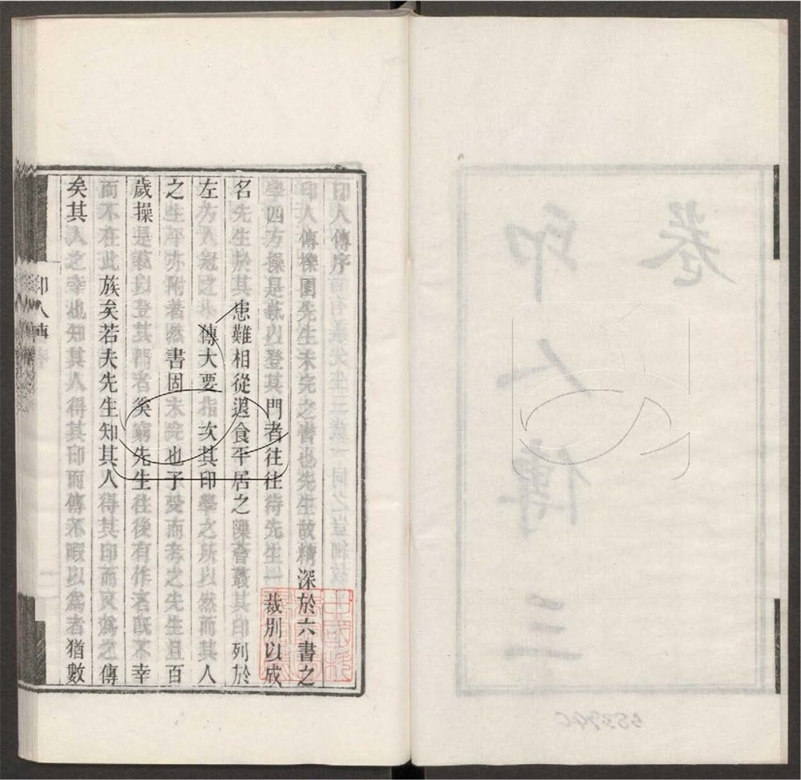 印人傳三
卷
印人傳序
印人傳櫟園先生未完之書也先生故精深於六書之
學四方操是蓺以登其門者往往待先生一裁別以成
名先生於其患難相從退食平居之隙薈叢其印列於
左方人冠之以傳大要指次其印學之所以然而其人
之生平亦附著然書固未完也予受而考之先生且百
歲操是蓺以登其門者奚窮先生往後有作者既不幸
而不在此族矣若夫先生知其人得其印而又為之傳
矣其人之幸也知其人得其印而傳不暇以為者猶數
印人傳